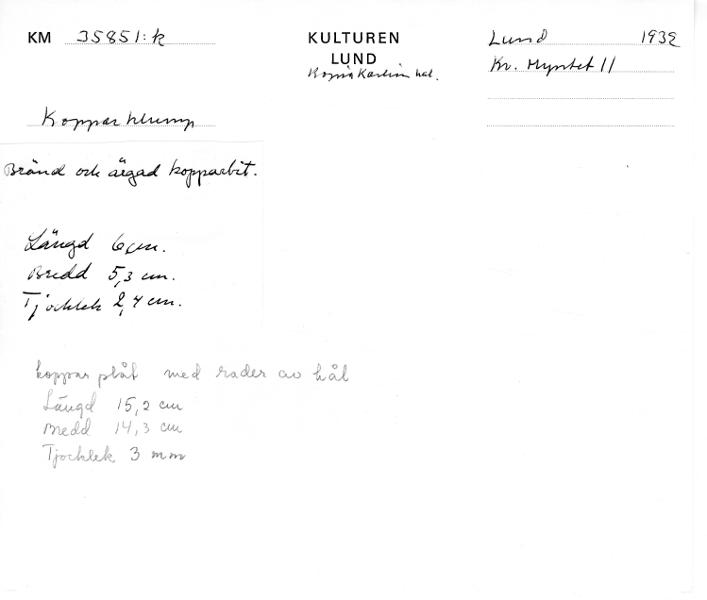 KM 35851:k
KULTUREN
LUND
Lund 1932
Kv. Myntet 11
Kopparklump
Bränd och ärgad kopparbit.
Längd 6 cm.
Bredd 5,3 cm.
Tjocklek 2,4 cm.
koppar plåt med rader av hål
Längd 15,2 cm
Bredd 14,3 cm
Tjocklek 3 mm